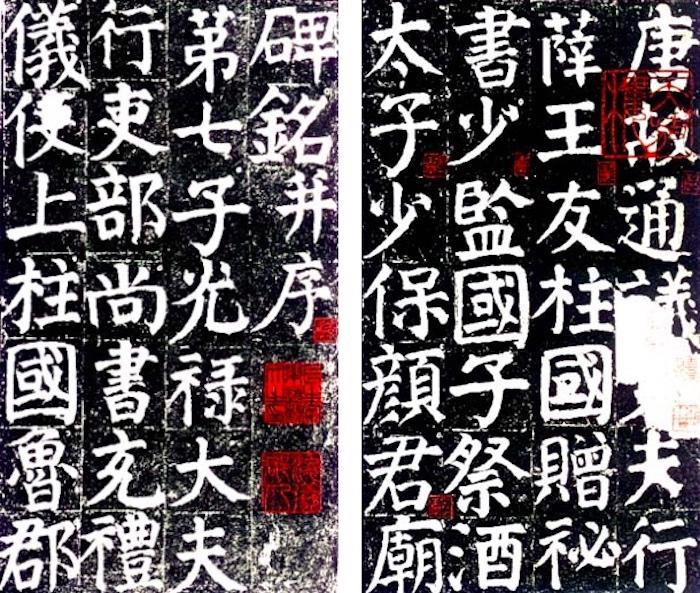 唐故通議夫行
薛王友柱國贈祕
書少監國子祭酒
太子少保顏君廟
碑銘并序
第七子光祿大夫
行吏部尚書充禮
儀使上柱國魯郡